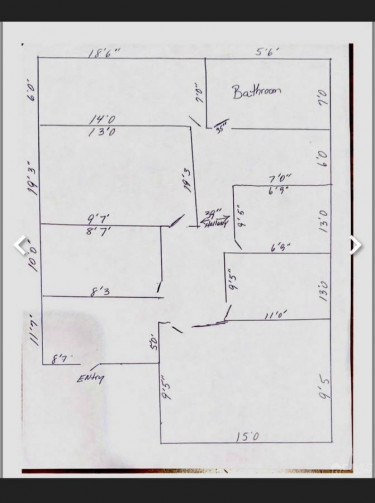 18'6" 5'6"
6'0" 7'0" Bathroom 7'0
36"
14'0
13'0 6'0
14'3" 14'3 7'0"
6'9"
39" Hallway 9'5" 13'0
9'7"
8'7"
10'0" 6'9"
8'3 9'5" 13'0
11'0"
11'7" 5'0"
8'7"
Entry 9'5" 9'5
15'0